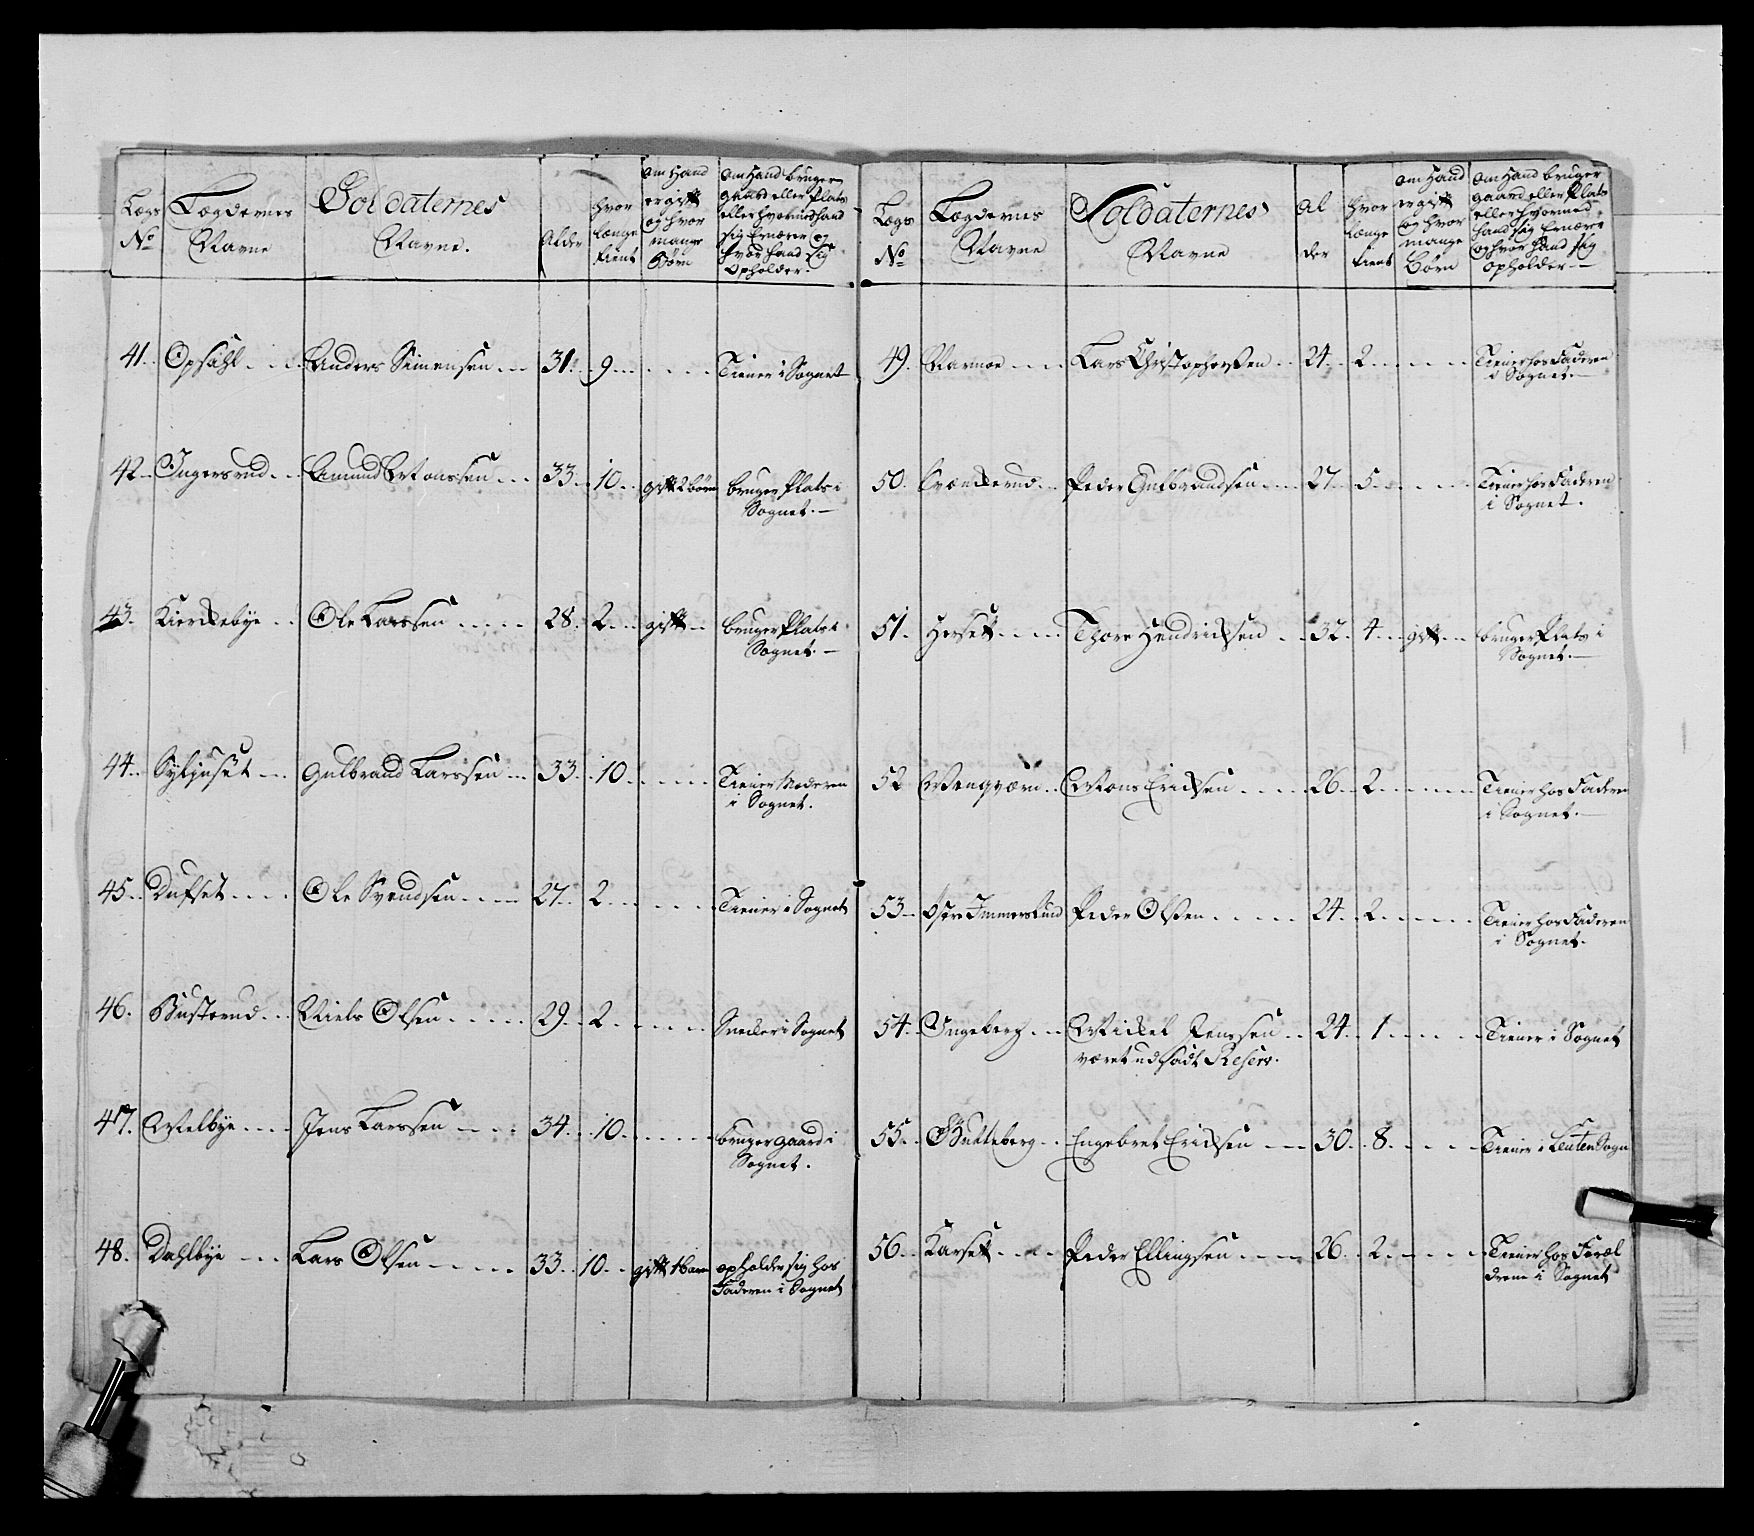 Lægs No
Lægdernes Navne
Soldaternes Navne.
Alder
hvor længe tient
om Hand er gift og hvor mange Børn
om Hand bruger gaard eller Plats eller hvormed hand sig Ernærer og hvor hand sig opholder.
41. Opsahl Anders Simensen 31. 9. Tiener i Sognet
42 Ingersrud Amund Monssen 33. 10. gift 2 børn bruger Plats i
Sognet.
43. Kierckebye Ole Larssen 28. 2. gift bruger Plats i
Sognet.
44. Syljuset Gulbrand Larssen 33. 10. Tiener Moderen
i Sognet.
45. Dufset Ole Svendsen 27. 2. Tiener i Sognet
46. Busterud Niels Olsen 29. 2. Snecker i Sognet
47. Melbye Jens Larssen 34. 10. bruger gaard i
Sognet.
48. Dahlbye Lars Olsen 33. 10. gift 1 barn opholder sig hos
Faderen i Sognet
Lægs No
Lægdernes Navne
Soldaternes Navne
Alder
hvor længe tient
om Hand er gift og hvor mange Børn
om Hand bruger gaard eller Plats eller hvormed hand sig Ernærer og hvor hand sig opholder
49. Narmoe Lars Christophersen 24. 2. Tiener hos Faderen
i Sognet.
50. Peder Gulbrandsen 27. 5. Tiener hos Faderen
i Sognet.
51. Herset Thore Hendricksen 32. 4. gift bruger Plats i
Sognet.
52 Mons Ericksen 26. 2. Tiener hos Faderen
i Sognet.
53. Immerslund Peder Olsen 24. 2. Tiener hos Faderen
i Sognet.
54. Ingeberg Mickel Jenssen 24. 1. Tiener i Sognet
været udsadt Reserv.
55. Gutteberg Engebret Ericksen 30. 8. Tiener i Leuten Sogn
56. Karset Peder Ellingsen 26. 2. Tiener hos Foræl
drene i Sognet